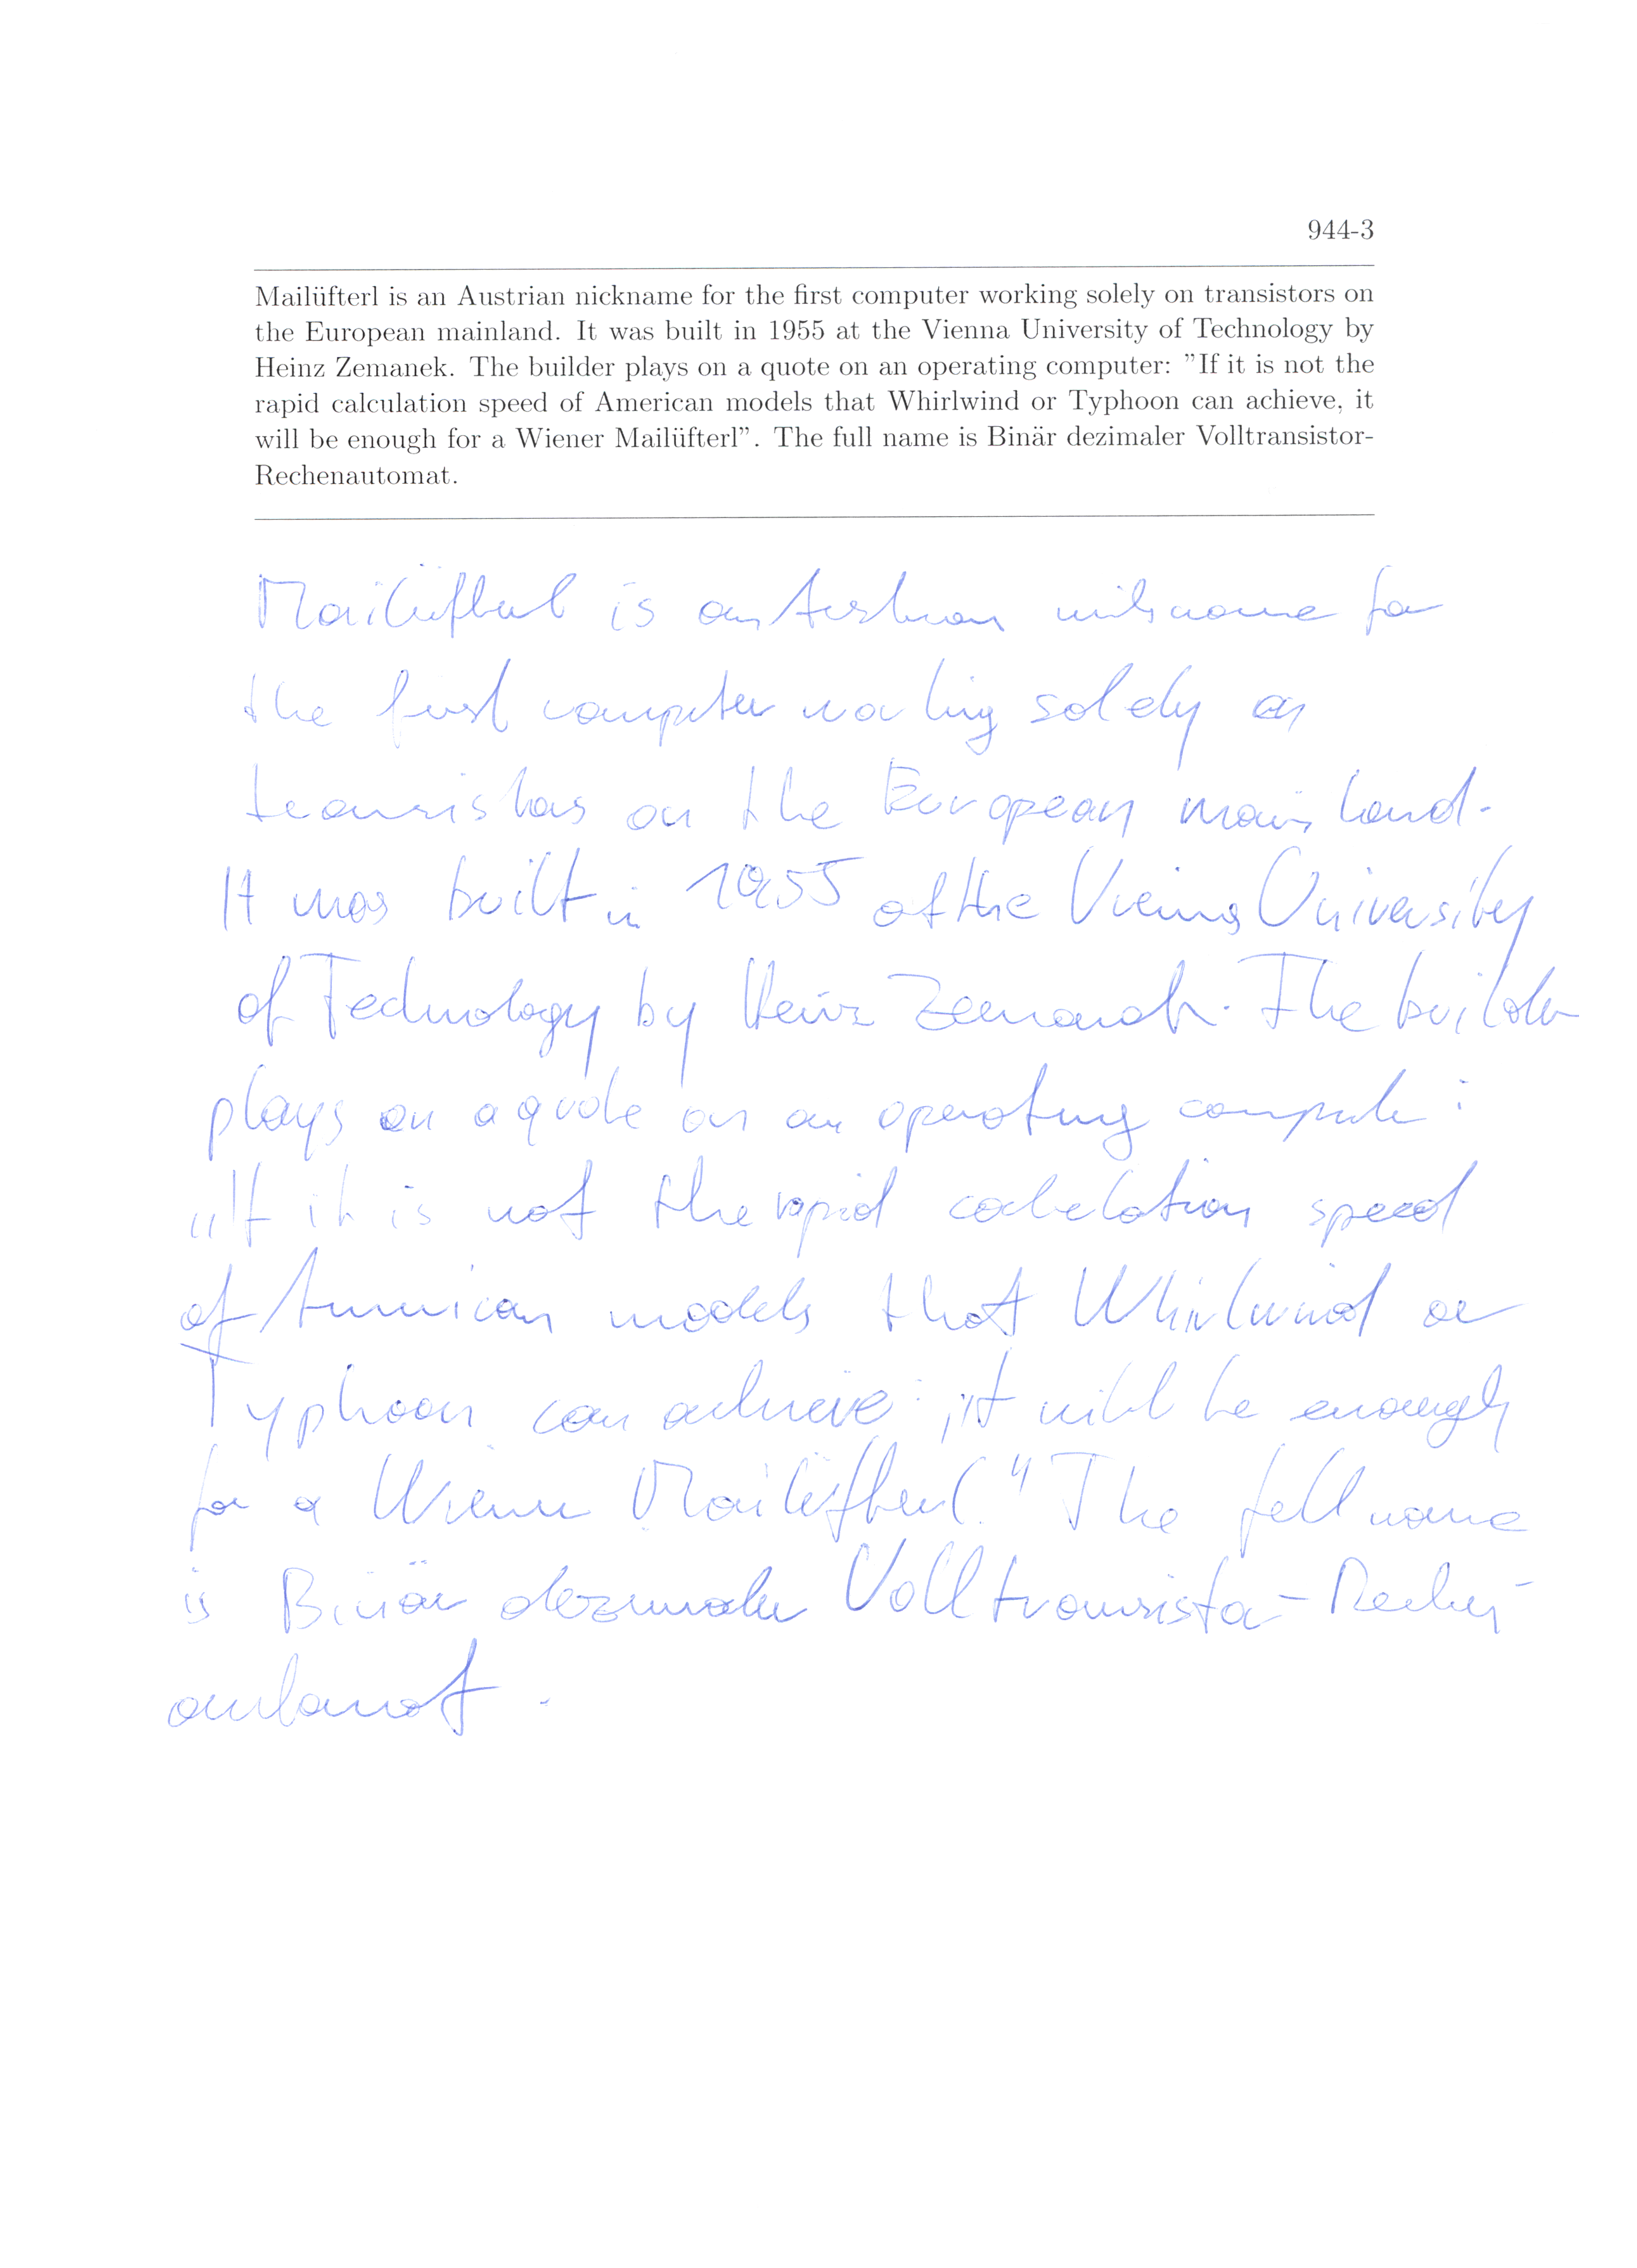 944-3
Mailüfterl is an Austrian nickname for the first computer working solely on transistors on
the European mainland. It was built in 1955 at the Vienna University of Technology by
Heinz Zemanek. The builder plays on a quote on an operating computer: "If it is not the
rapid calculation speed of American models that Whirlwind or Typhoon can achieve, it
will be enough for a Wiener Mailüfterl". The full name is Binär dezimaler Volltransistor-
Rechenautomat.
Mailüfterl is an Austrian nickname for
the first computer working solely on
transistors on the European mainland.
It was built in 1955 at the Vienna University
of Technology by Heinz Zemanek. The builder
plays on a quote on an operating computer:
„If it is not the rapid calculation speed
of American models that Whirlwind or
Typhoon can achieve, it will be enough
for a Wiener Mailüfterl." The full name
is Binär dezimaler Volltransistor-Rechen-
automat.